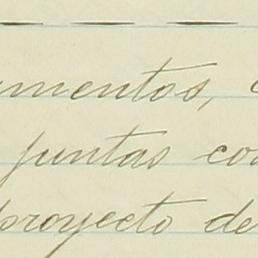 umentos,
juntas con
proyecto de